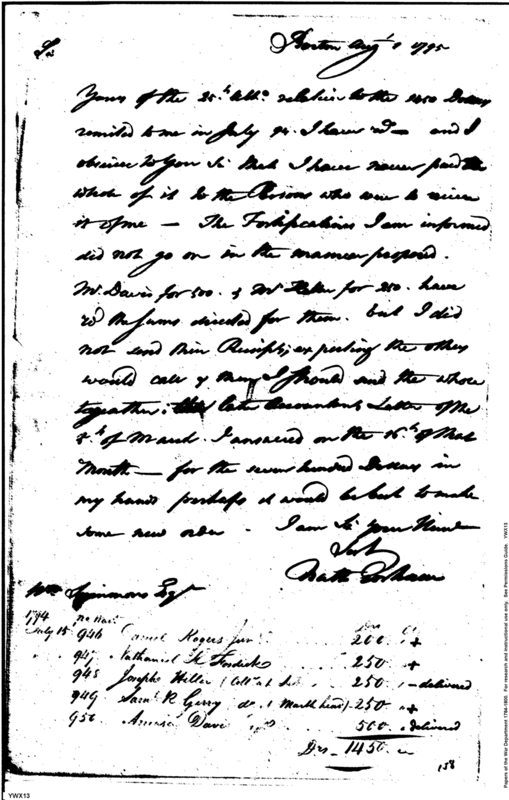 Boston Augt 1 1795
Sir
Yours of the 25th Ulto. relative to the 1450 Dollars
remited to me in July 94. I have recd — and I
observe to you Sir that I have never paid the
whole of it to the Persons who were to receive
it of me — The Fortifications I am informed
did not go on in the manner proposed.
Mr. Davis for 500. & Mr Hiller for 250. have
recd the sums directed for them. but I did
not send their Receipts, expecting the others
would call & then I should send the whole
together; late Accountants Letter of the
8th of March. I answered on the 16th of that
Month — for the seven hundred Dollars in
my hands perhaps it would be best to make
some new order. I am Sir your Hum
Sert
Nath Gorham
Wm Simmons Esqr
1794
July 15 946 Daniel Rogers Junr 200 +
947 Nathaniel F Fosdick 250 +
948 Joseph Hiller 250 - delivered
949 Saml R Gerry do. (Marblehead) - 250 +
950 Davis 500 delivered
Drs 1450
158
Papers of the War Department 1784-1800. For research and instructional use only. See Permissions Guide. YWX13
YWX13